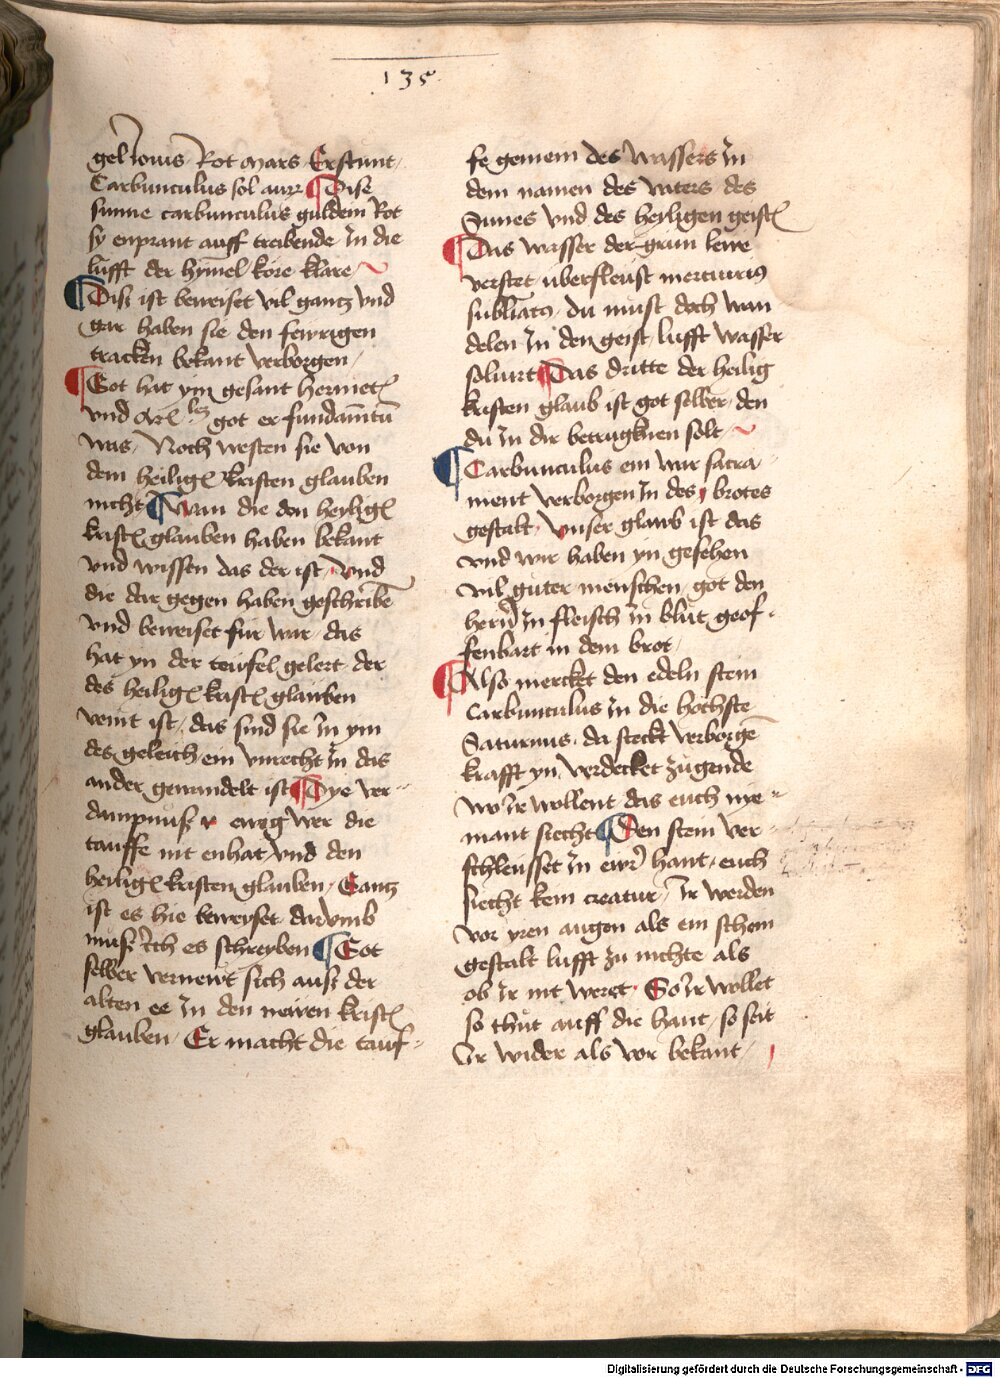 135
gel Jouis Rot mars Erstunt
Carbunculus sol aur Dise
sunne carbunculus guldein Rot
sy enprant auff treibende In die
lüfft der hymel kore klare
Diß ist beweiset vil gantz vnd
gar haben sie den fewrigen
tracken bekant verborgen
Got hat ym gesant hermet
vnd Ar got er fundamtū
was Noch westen sie von
dem heilig kristen glauben
nicht Wan die den heylig
krist glauben haben bekant
vnd wissen das der ist vnd
die dar gegen haben geschribē
vnd beweiset für war das
hat yn der teüfel gelert der
des heilig krist glauben
veint ist das sind sie In ym
des geleich ein vnrecht In das
ander gewandelt ist Dye ver
dampnüß ewig wer die
tauffe nit enhat vnd den
heilig kristen glauben Gantz
ist es hie beweyset darvmb
müß ich es schreyben Got
selber vernewt sich auß der
alten ee In den newen krist
glauben Er macht die tauf
fe gemein des wassers In
dem namen des vaters des
Sunes vnd des heyligen geist
Das wasser der grün lewe
verstet vberfleust mercurius
sublimatus du must doch wan
delen In den geist lufft wasser
soluirt Das dritte der heilig
kristen glaub ist got selber den
du In dir betrugknen solt
Carbunculus ein war sacra
ment verborgen In des brotes
gestalt vnser glaub ist das
vnd wir haben yn gesehen
vil guter menschen got den
hern In fleisch In blüt geof
fenbart in dem brot
Also mercket den edeln stein
Carbunculus In die hochste
Saturnus da steckt verborgē
krafft yn verdecket zügende
wo Ir wollent das euch nye
mant siecht Den stein ver
schleüsset In ewr hant euch
siecht kein creatur Ir werden
vor yren augen als ein schem
gestalt lufft zu nichte als
ob Ir nit weret So Ir wollet
so thut auff die hant so seit
Ir wider als vor bekant
Digitalisierung gefördert durch die Deutsche Forschungsgemeinschaft - DFG